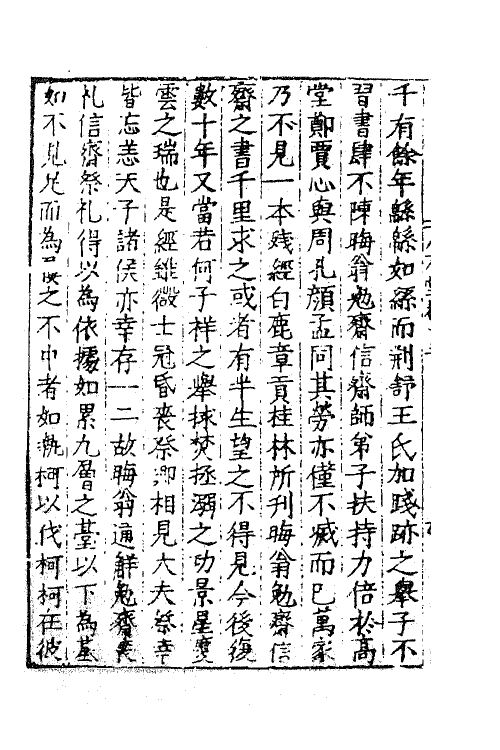 千有餘年緜緜如絲而荆舒王氏加踐跡之舉子不
習書肆不陳晦翁勉齋信齋師弟子扶持力倍於高
堂鄭賈心與周孔顔孟同其勞亦僅不臧而已萬家
乃不見一本殘經白鹿章貢桂林所刋晦翁勉齋信
齋之書千里求之或者有半生望之不得見今後復
數十年又當若何子祥之舉捄焚拯溺之功景星慶
雲之瑞也是經雖微士冠昏喪祭鄉相見大夫祭幸
皆忘恙天子諸侯亦幸存一二故晦翁通觧勉齋喪
礼信齋祭礼得以為依據如累九層之䑓以下為基
如不見足而為屨之不中者如執柯以伐柯柯在彼